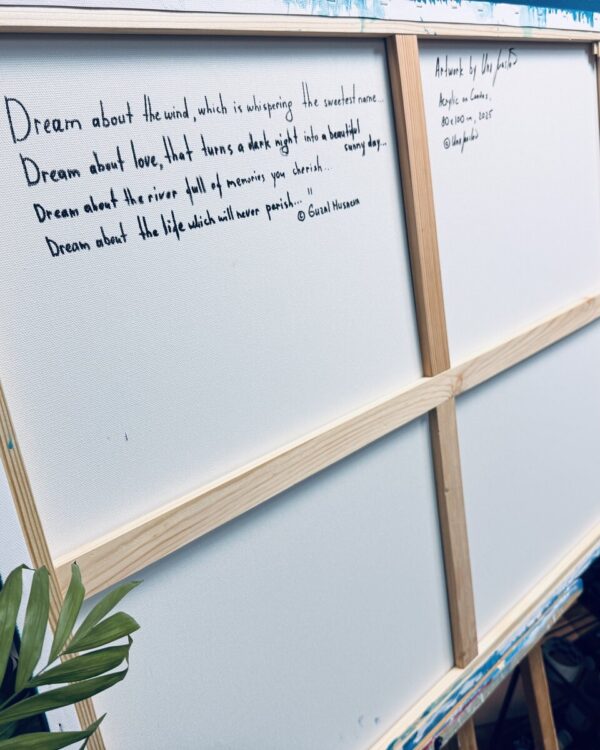 Dream about the wind, which is whispering the sweetest name...
Dream about love, that turns a dark night into a beautiful
sunny day...
Dream about the river full of memories you cherish...
Dream about the life which will never perish..."
© Guzal Husaena
Artwork by Una
Acrylic on Canvas,
80x100cm, 2025
© Una